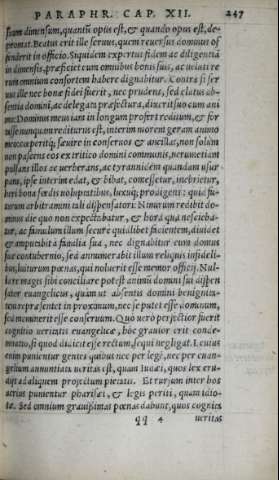 PARAPHR. CAP. XII. 247
suum dimensum, quantū opus est, & quando opus est, de-
promat. Beatus erit ille seruus, quem reuersus dominus of
fenderit in officio. Siquidem expertus fidem ac diligentiā
in dimensis, præficiet eum omnibus bonis suis, ac uelut re
rum omnium consortem habere dignabitur. Contra si ser
uus ille nec bonæ fidei fuerit, nec prudens, sed elatus ab-
sentia domini, ac delegata præfectura, dixerit suo cum ani
mo: Dominus meus iam in longum profert reditum, & for
tasse nunquam rediturus est, interim morem geram animo
meo: cœperitq; sæuire in conseruos & ancillas, non solùm
non pascens eos ex tritico domini communis, uerumetiam
pulsans illos ac uerberans, ac tyrannidem quandam usur
pans, ipse interim edat, & bibat, comessetur, inebrietur,
heri bona fœdis uoluptatibus, luxuq; prodigens: quid fu-
turum arbitramini tali dispensatori? Nimirum redibit do-
minus die quo non expectabatur, & hora quā nesciebā-
tur, ac famulum illum securè quidlibet facientem, diuidet
& amputabit à familia sua, nec dignabitur eum domus
suæ contubernio, sed annumerabit illum reliquis infideli-
bus, daturum pœnas, qui noluerit esse memor officij. Nul-
la re magis sibi conciliare potest animū domini sui dispen
sator euangelicus, quàm ut absentis domini benignita-
tem repræsentet in proximum, nec se putet esse dominum,
sed meminerit esse conseruum. Quo uerò perfectior fuerit
cognitio ueritatis euangelicæ, hoc grauior erit conde-
mnatio, si quod didicit esse rectum, sequi neglīgat. Leuius
enim punientur gentes quibus nec per legē, nec per euan-
gelium annuntiata ueritas est, quàm Iudæi, quos lex eru-
dijt ad aliquem profectum pietatis. Et rursum inter hos
acrius punientur pharisæi, & legis periti, quàm idio-
tæ. Sed omnium grauissimas pœnas dabunt, quos cognita
qq 4 ueritas